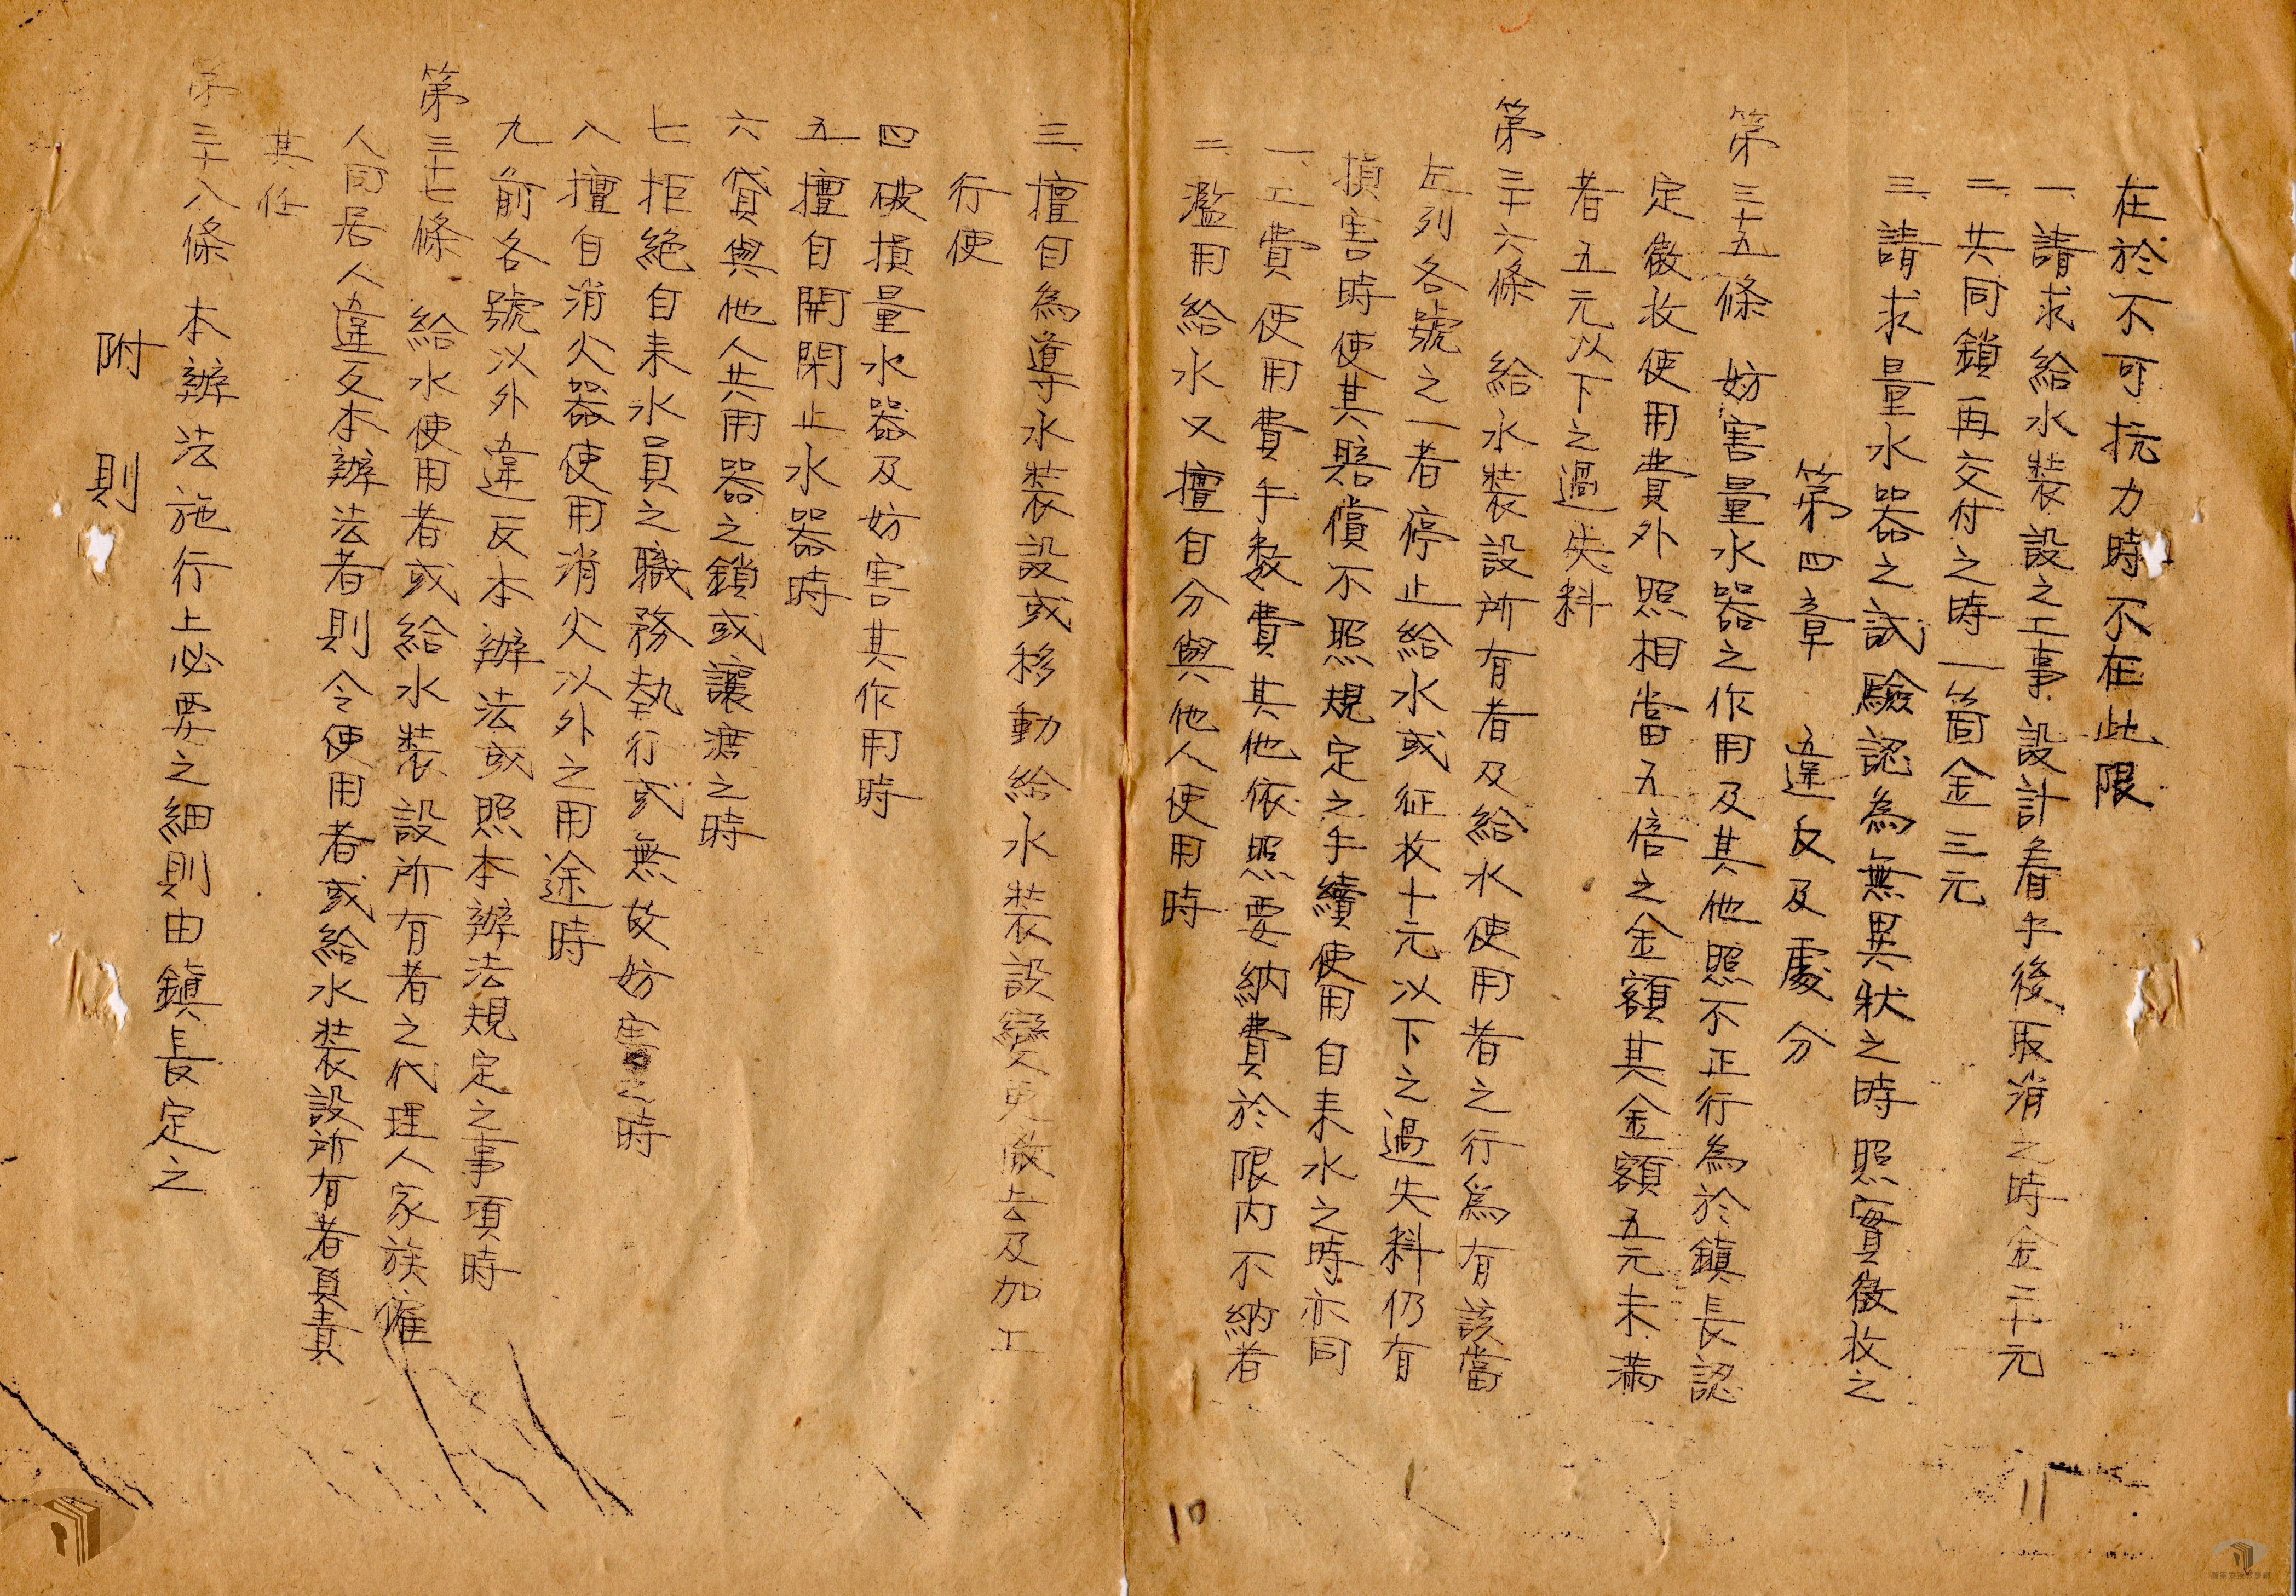 在於不可抗力時不在此限
一、請求給水裝設之工事設計着手後取消之時金二十元
二、共同鎖再交付之時一箇金三元
三、請求量水器之試驗認為無異狀之時照實徵收之
第四章　違反及處分
第三十五條　妨害量水器之作用及其他照不正行為於鎮長認
定徵收使用費外照相當五倍之金額其金額五元未滿
者五元以下之過失料
第三十六條　給水裝設所有者及給水使用者之行爲有該當
左列各號之一者停止給水或征收十元以下之過失料仍有
損害時使其賠償不照規定之手續使用自来水之時亦同
一、工費使用費手数費其他依照要納費於限内不納者
二、濫用給水又擅自分與他人使用時
三、擅自為導水裝設或移動給水裝設變更撤去及加工
行使
四破損量水器及妨害其作用時
五擅自開閉止水器時
六貸與他人共用器之鎖或讓渡之時
七拒絶自来水員之職務執行或無故妨害之時
八擅自消火器使用消火以外之用途時
九前各號以外違反本辦法或照本辦法規定之事項時
第三十七條　給水使用者或給水裝設所有者之代理人家族雇
人同居人違反本辦法者則令使用者或給水裝設所有者負責
其任
第三十八條　本辦法施行上必要之細則由鎮長定之
附　則
10
11